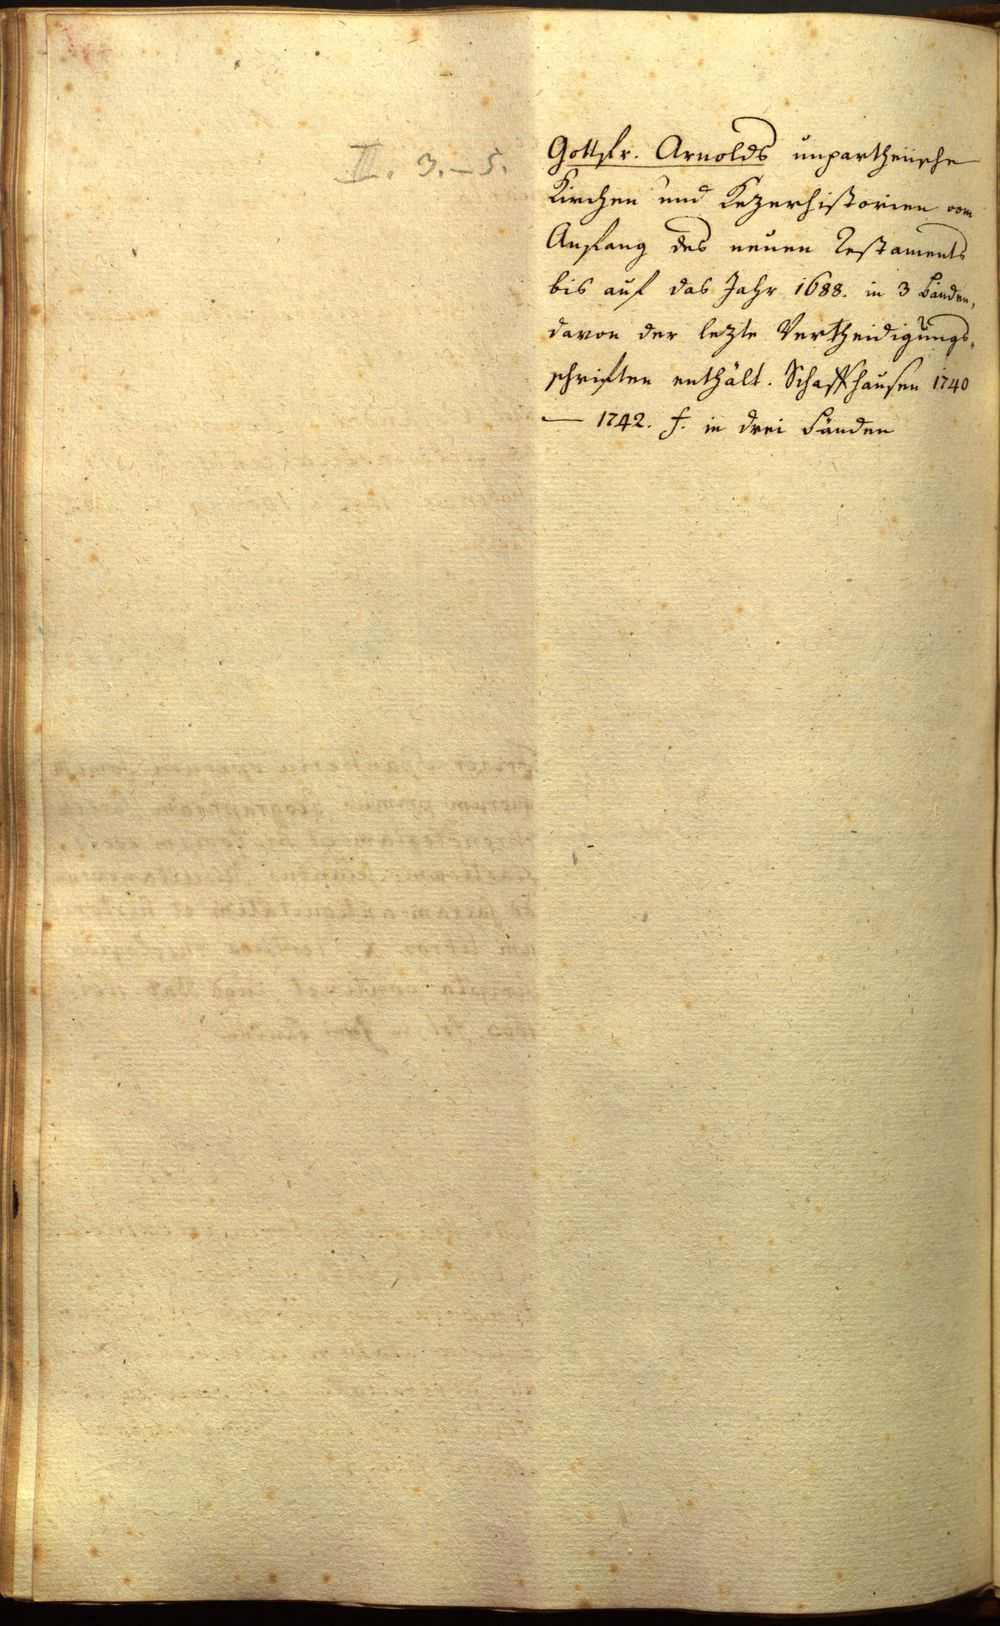 III. 3.-5.
Gottfr. Arnolds unpartheiische
Kirchen und Kezerhistorien vom
Anfang des neuen Testaments
bis auf das Jahr 1688. in 3 Bänden,
davon der lezte Vertheidigungs,
schriften enthält. Schaffhausen 1740
— 1742. f. in drei Bänden